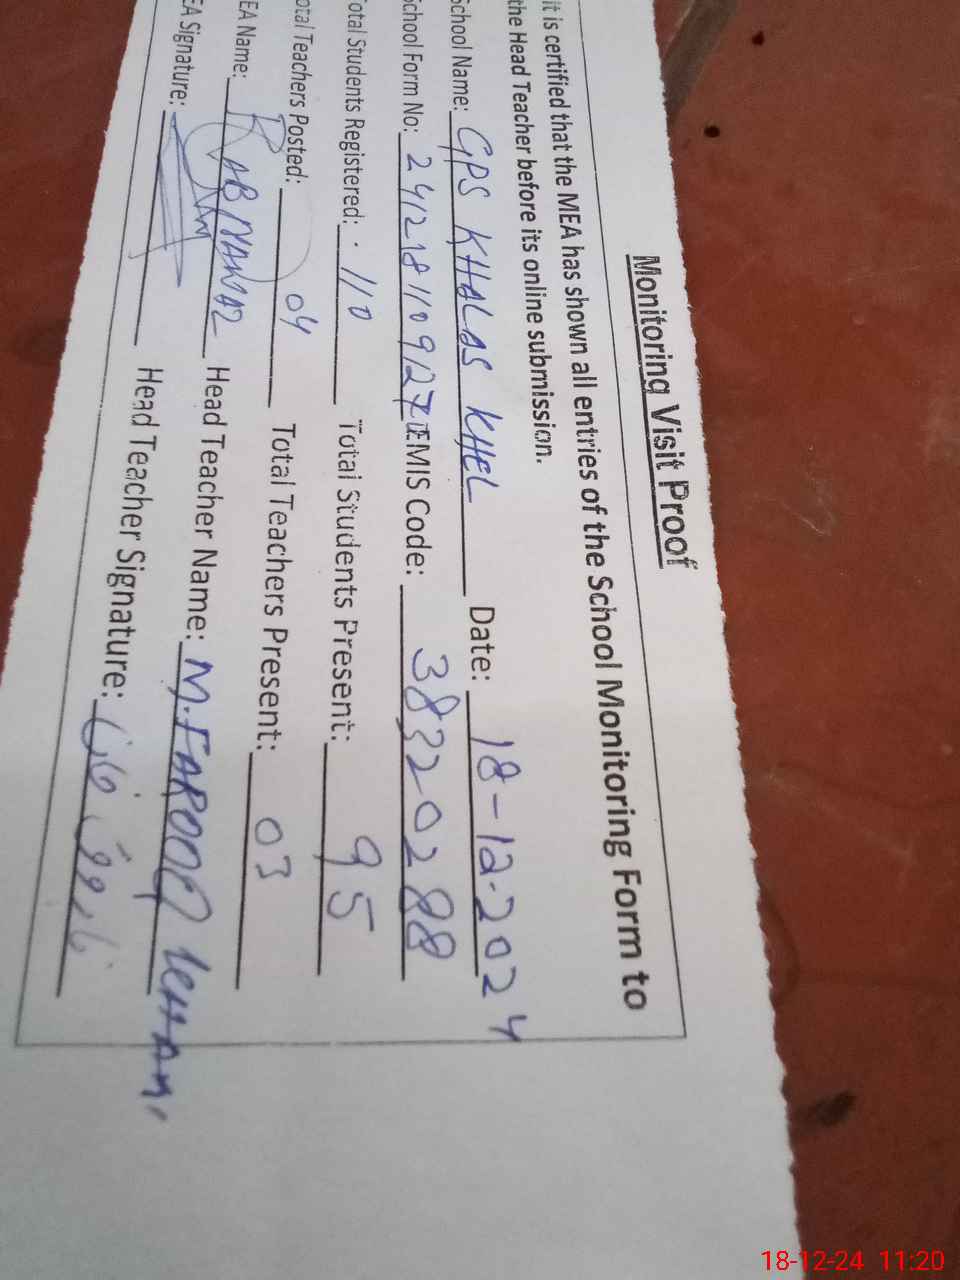 Monitoring Visit Proof
It is certified that the MEA has shown all entries of the School Monitoring Form to
the Head Teacher before its online submission.
School Name: GPS KHALAS KHEL Date: 18-12-2024
School Form No: 2412181109127 EMIS Code: 38320288
Total Students Registered: 110 Total Students Present: 95
otal Teachers Posted: 04 Total Teachers Present: 03
EA Name: RAB NAWAZ Head Teacher Name: M. FAROOQ KHAN
EA Signature: Head Teacher Signature:
18-12-24 11:20